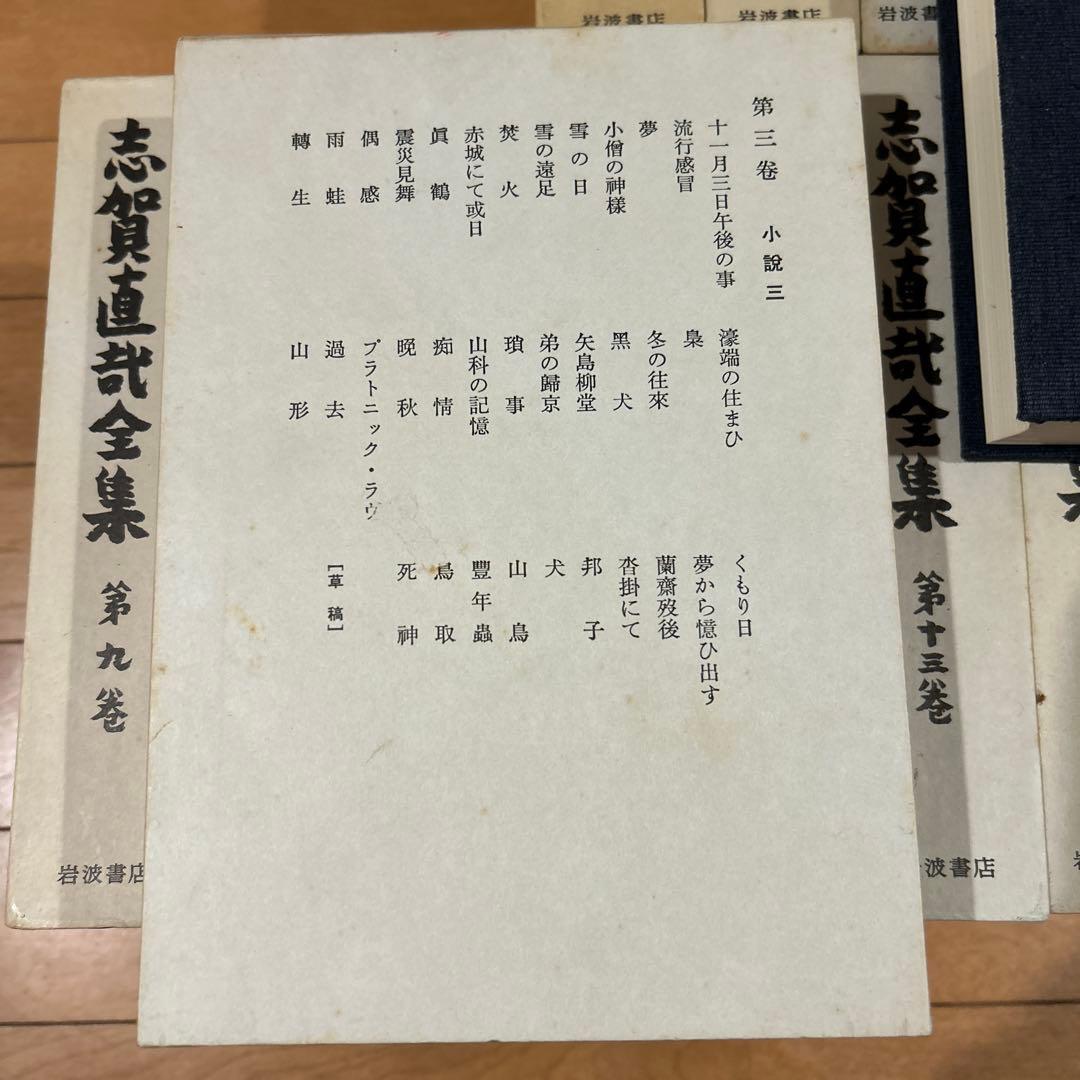 第三卷 小說三
十一月三日午後の事
流行感冒
夢
小僧の神樣
雪の日
雪の遠足
焚火
赤城にて或日
眞鶴
震災見舞
偶感
雨蛙
轉生
濠端の住まひ
梟
冬の往來
黑犬
矢島柳堂
弟の歸京
瑣事
山科の記憶
痴情
晩秋
プラトニック・ラヴ
過去
山形
くもり日
夢から憶ひ出す
蘭齋歿後
沓掛にて
邦子
犬
山鳥
豐年蟲
鳥取
死神
［草稿］
志賀直哉全集 第九卷
岩波書店
志賀直哉全集 第十三卷
波書店
岩波書店
岩波書店
岩波書